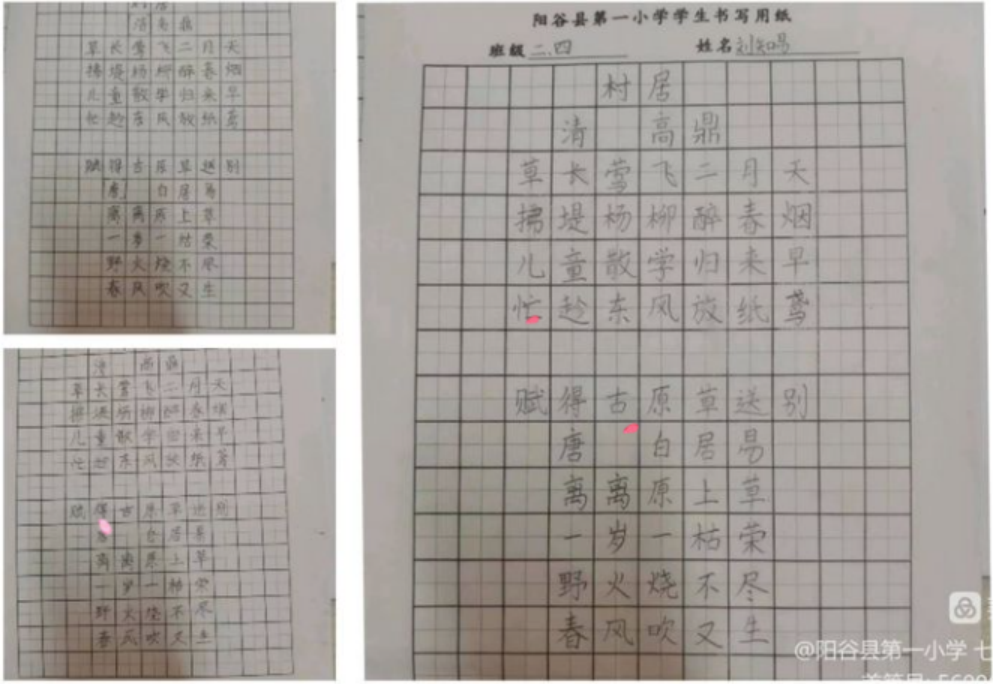 清 高鼎
草长莺飞二月天
拂堤杨柳醉春烟
儿童散学归来早
忙趁东风放纸鸢
赋得古原草送别
唐 白居易
离离原上草
一岁一枯荣
野火烧不尽
春风吹又生
清 高鼎
草长莺飞二月天
拂堤杨柳醉春烟
儿童散学归来早
忙趁东风放纸鸢
赋得古原草送别
白居易
离离原上草
一岁一枯荣
野火烧不尽
春风吹又生
阳谷县第一小学学生书写用纸
班级 二.四 姓名
村居
清 高鼎
草长莺飞二月天
拂堤杨柳醉春烟
儿童散学归来早
忙趁东风放纸鸢
赋得古原草送别
唐 白居易
离离原上草
一岁一枯荣
野火烧不尽
春风吹又生
@阳谷县第一小学 七